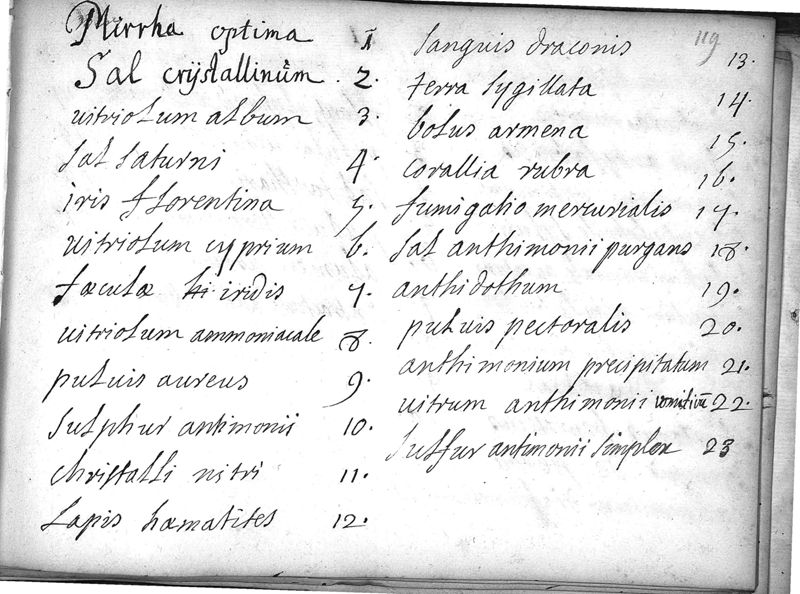 Mirrha optima 1
Sal crÿstallinum 2.
uitriolum album 3.
sal saturni 4.
iris florentina 5.
uitriolum cyprium 6.
fæculæ iridis 7.
uitriolum ammoniacale 8.
puluis aureus 9.
sulphur antimonii 10.
christalli nitri 11.
Lapis hæmatites 12.
119
Sanguis draconis 13.
terra sygillata 14.
bolus armena 15.
corallia rubra 16.
fumigatio mercurialis 17.
sal anthimonii purgans 18.
anthidothum 19.
puluis pectoralis 20.
anthimonium precipitatum 21.
uitrum anthimonii vomitiuũ 22.
sulfur antimonii simplex 23